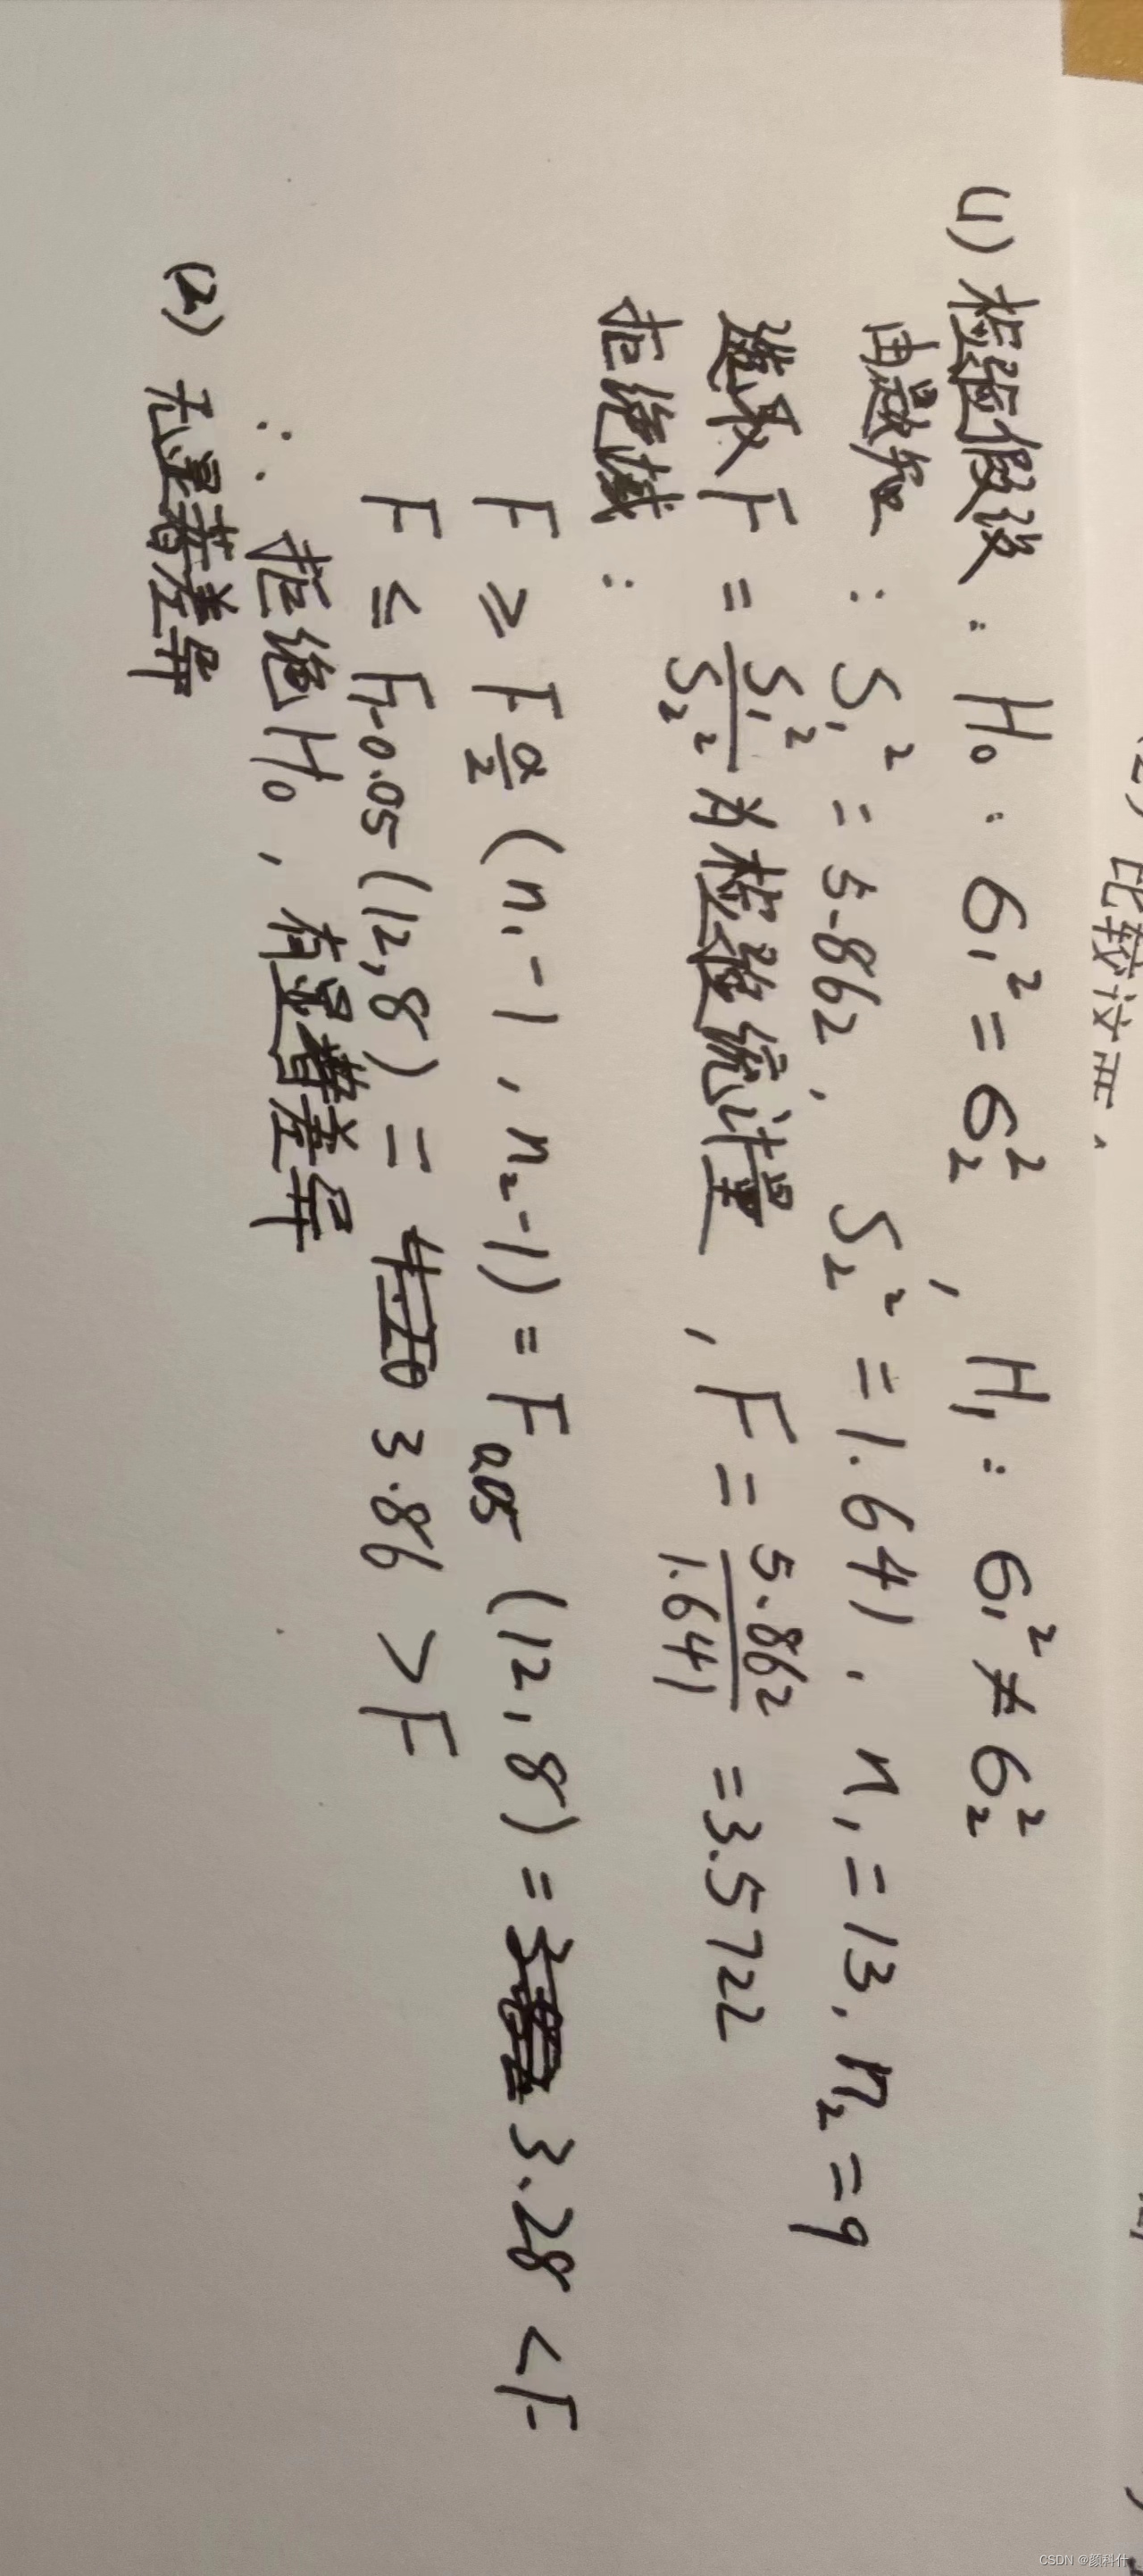 比较这两
(1) 检验假设: H₀: σ₁² = σ₂², H₁: σ₁² ≠ σ₂²
由题知: S₁² = 5.862, S₂² = 1.641. n₁ = 13, n₂ = 9
选取 F = S₁²/S₂² 为检验统计量, F = 5.862/1.641 = 3.5722
拒绝域:
F ≥ F α/2 (n₁-1, n₂-1) = F 0.05 (12, 8) = 3.28 < F
F ≤ F1-0.05 (12, 8) = 3.86 > F
∴ 拒绝H₀, 有显著差异
(2) 无显著差异
CSDN @颜科什